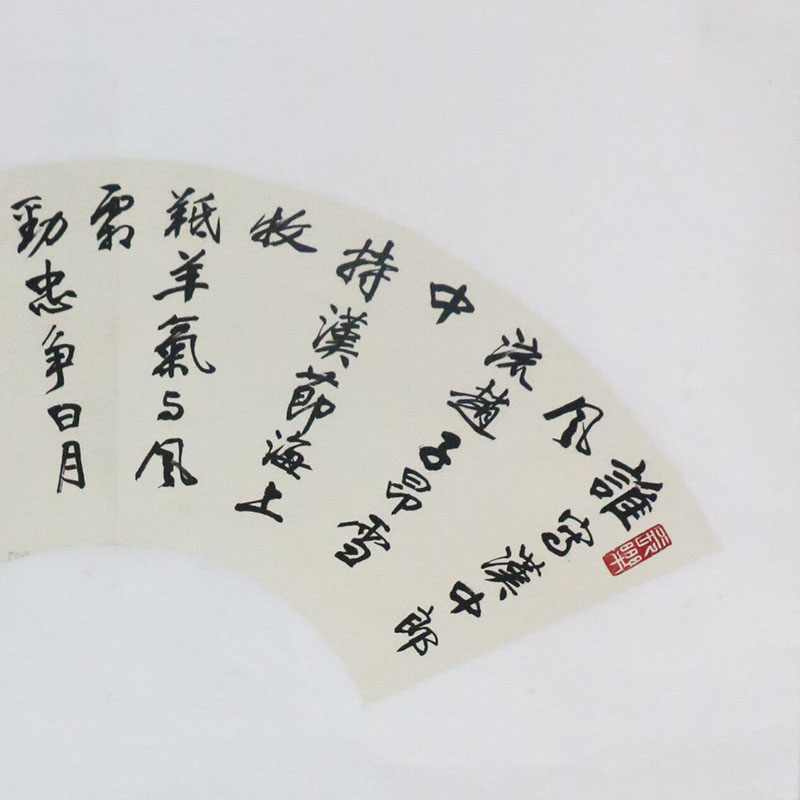 誰寫漢中郎
風
流趙子昂雪
中
持漢節海上
牧
羝羊氣与風
霜
勁忠争日月